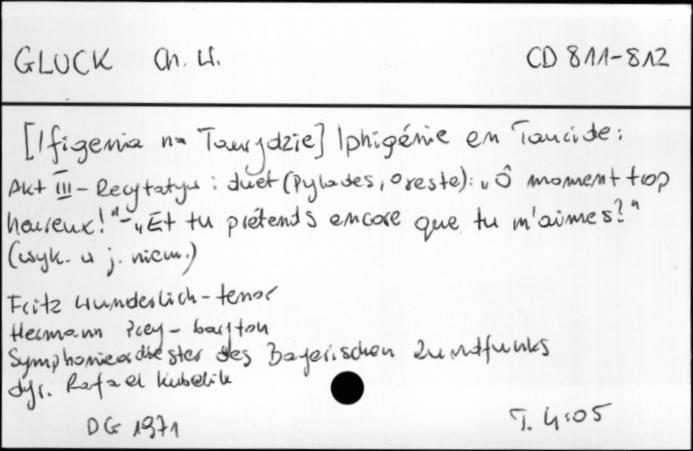 GLUCK Ch. W. CD 811-812
[Ifigenia na Taurydzie] Iphigénie en Tauride:
Akt III - Recytatyw i duet (Pylades, Oreste): „Ô moment trop
heureux!" - „Et tu prétends encore que tu m'aimes?"
(wyk. w j. niem.)
Fritz Wunderlich - tenor
Hermann Prey - baryton
Symphonieorchester des Bayerischen Rundfunks
dyr. Rafael Kubelik
DG 1971 T. 4:05